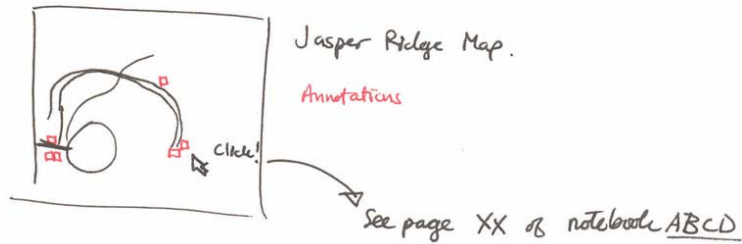 Jasper Ridge Map.
Annotations
Click!
See page XX of notebook ABCD